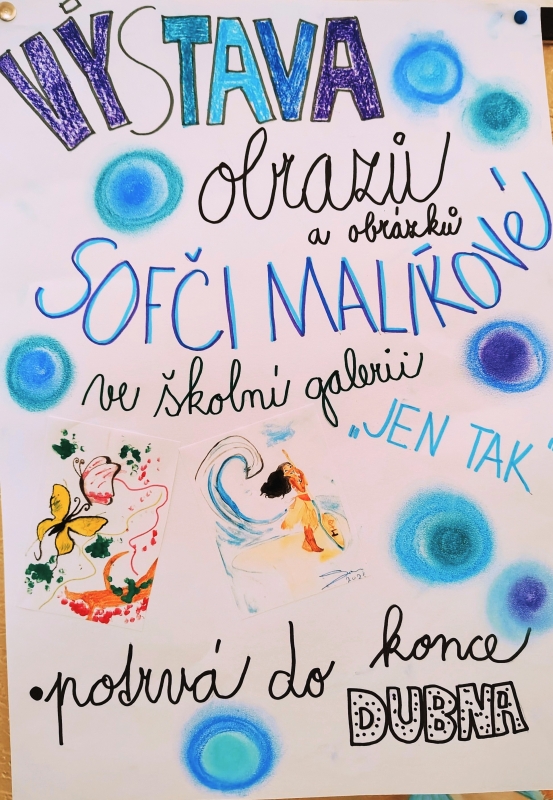 VÝSTAVA
obrazů
a obrázků
SOFČI MALÍKOVÉ
ve školní galerii
„JEN TAK“
potrvá do konce
DUBNA